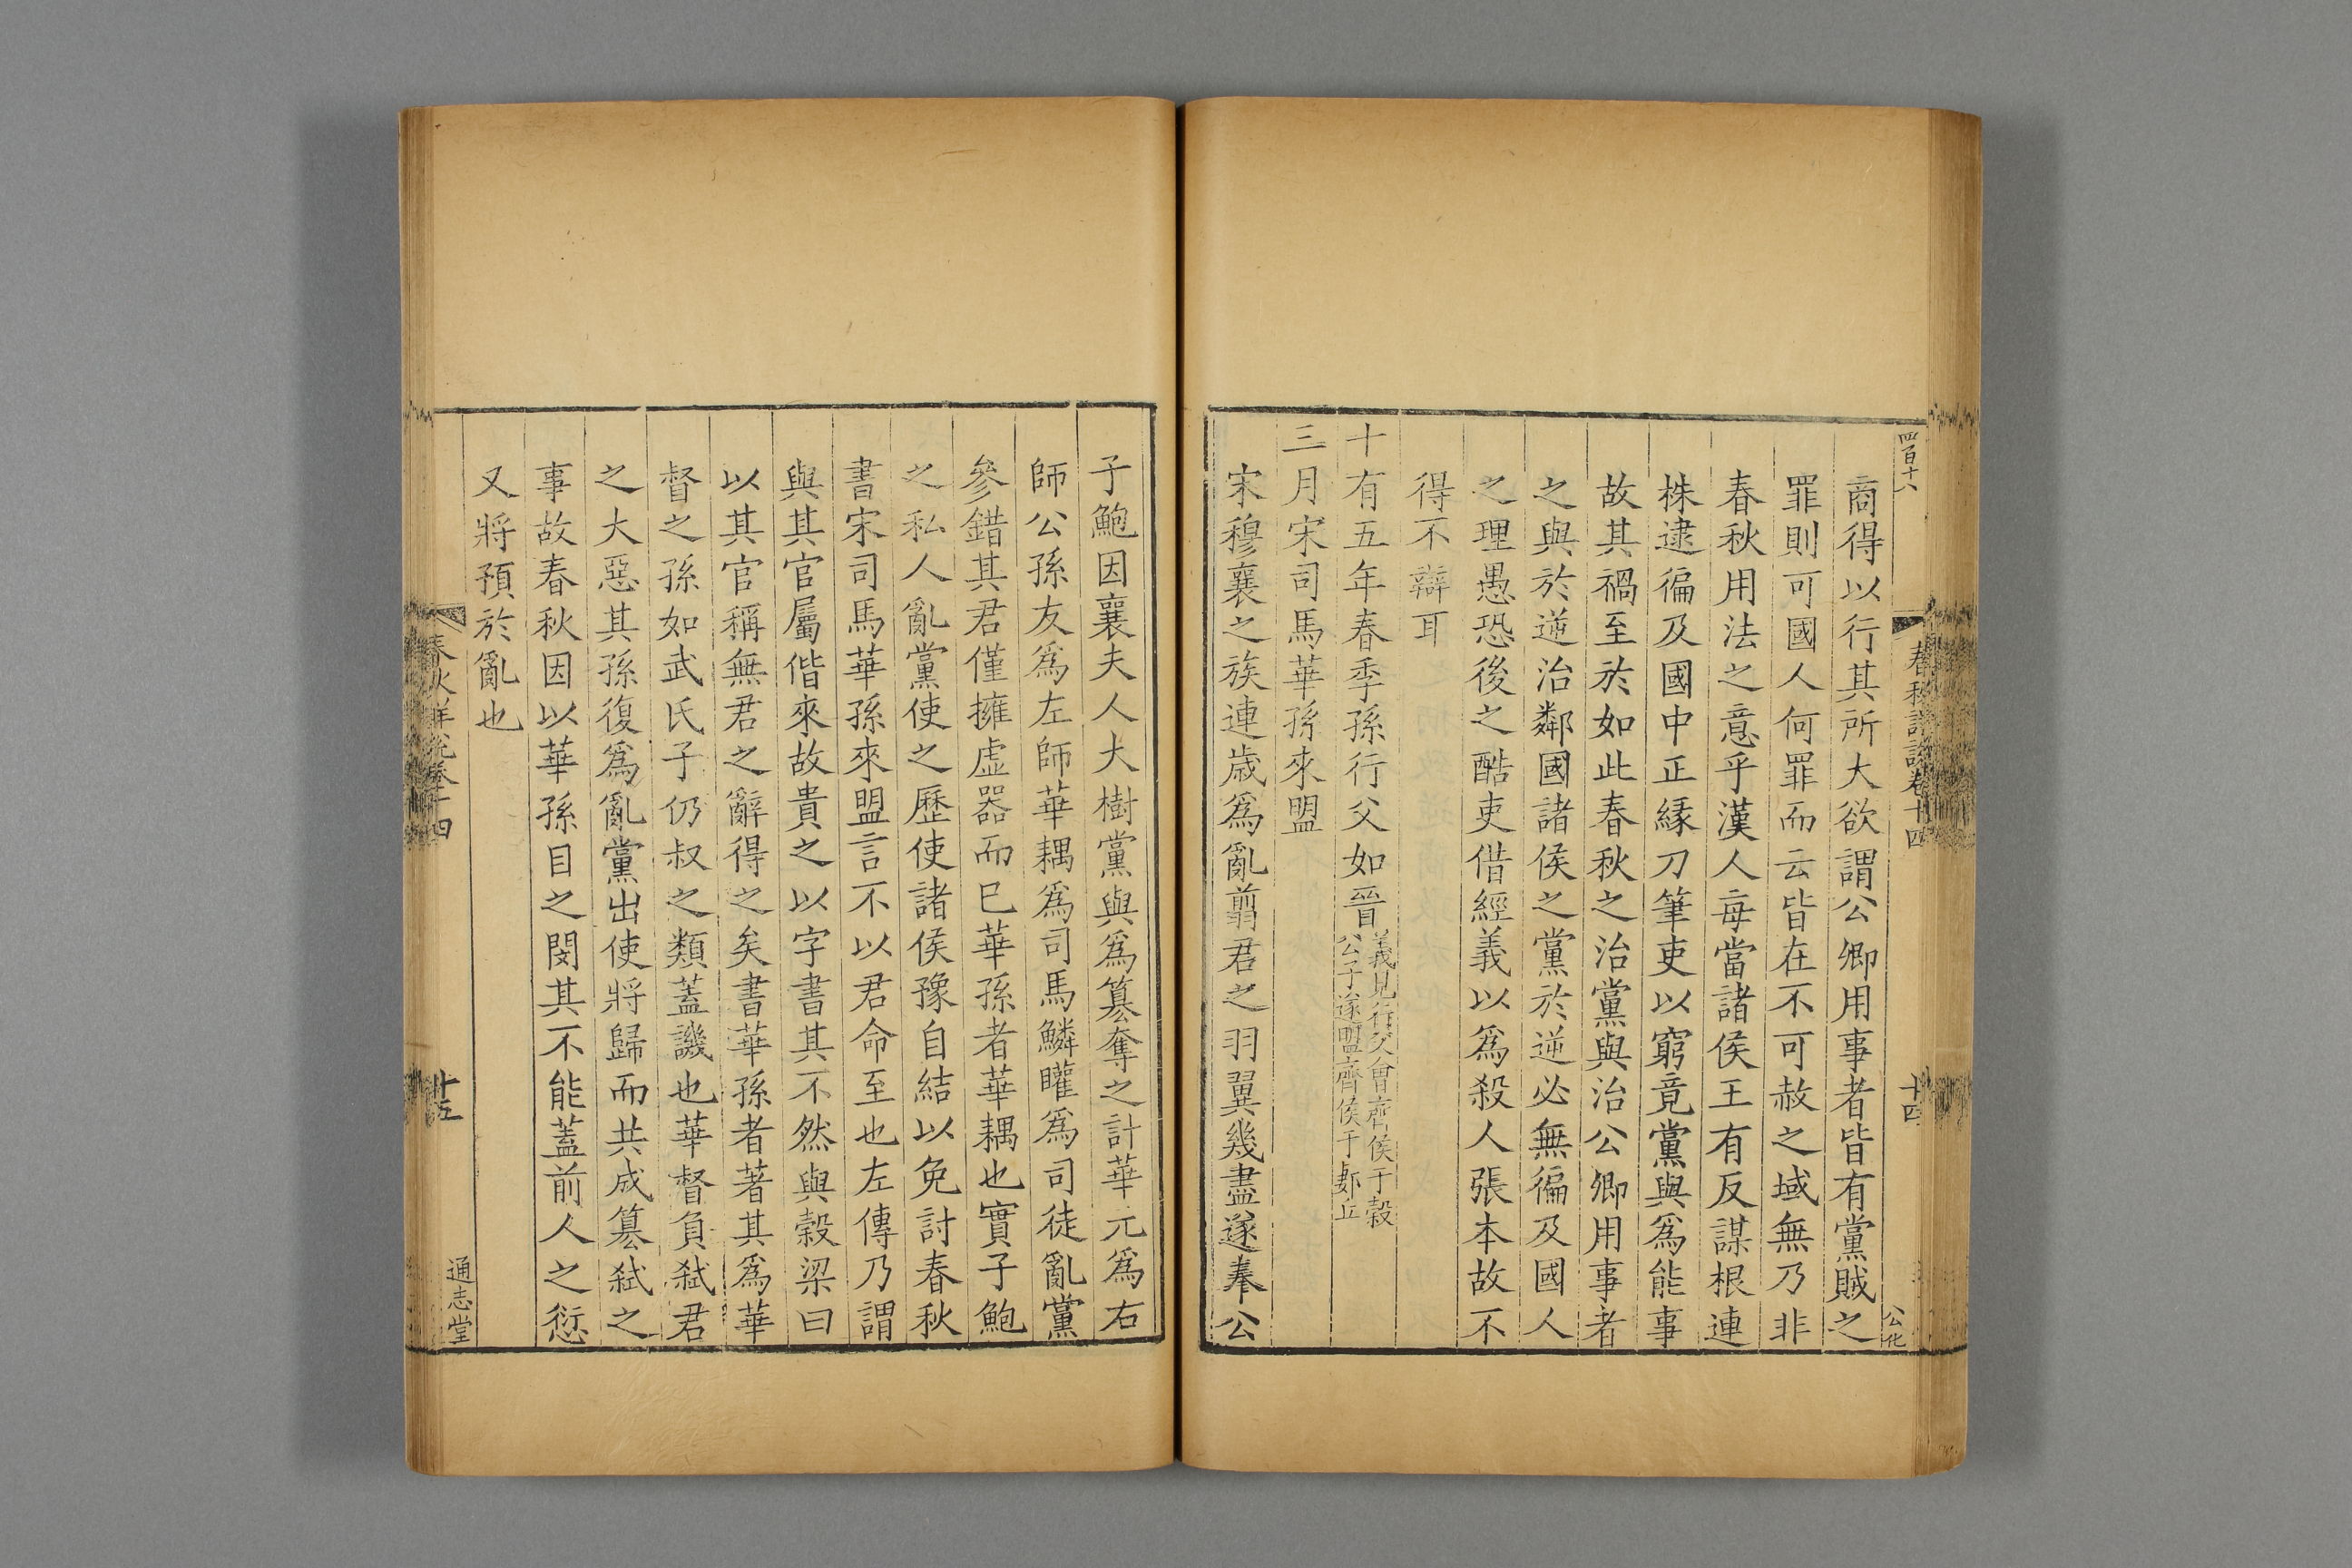 四百十八
春秋詳說卷十四
十四
公化
商得以行其所大欲謂公卿用事者皆有黨賊之
罪則可國人何罪而云皆在不可赦之域無乃非
春秋用法之意乎漢人每當諸侯王有反謀根連
株逮徧及國中正緣刀筆吏以窮竟黨與爲能事
故其禍至於如此春秋之治黨與治公卿用事者
之與於逆治鄰國諸侯之黨於逆必無徧及國人
之理愚恐後之酷吏借經義以爲殺人張本故不
得不辯耳
十有五年春季孫行父如晉義見行父會齊侯于穀
公子遂盟齊侯于郪丘
三月宋司馬華孫來盟
宋穆襄之族連歲爲亂翦君之羽翼幾盡遂奉公
子鮑因襄夫人大樹黨與爲篡奪之計華元爲右
師公孫友爲左師華耦爲司馬鱗矔爲司徒亂黨
參錯其君僅擁虛器而已華孫者華耦也實子鮑
之私人亂黨使之歷使諸侯豫自結以免討春秋
書宋司馬華孫來盟言不以君命至也左傳乃謂
與其官屬偕來故貴之以字書其不然與穀梁曰
以其官稱無君之辭得之矣書華孫者著其爲華
督之孫如武氏子仍叔之類蓋譏也華督負弒君
之大惡其孫復爲亂黨出使將歸而共成篡弒之
事故春秋因以華孫目之閔其不能蓋前人之愆
又將預於亂也
春秋詳說卷十四
十五
通志堂